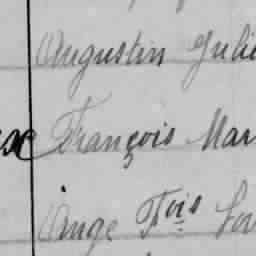 Augustin Julie
François Mar
Ange Fois Lou